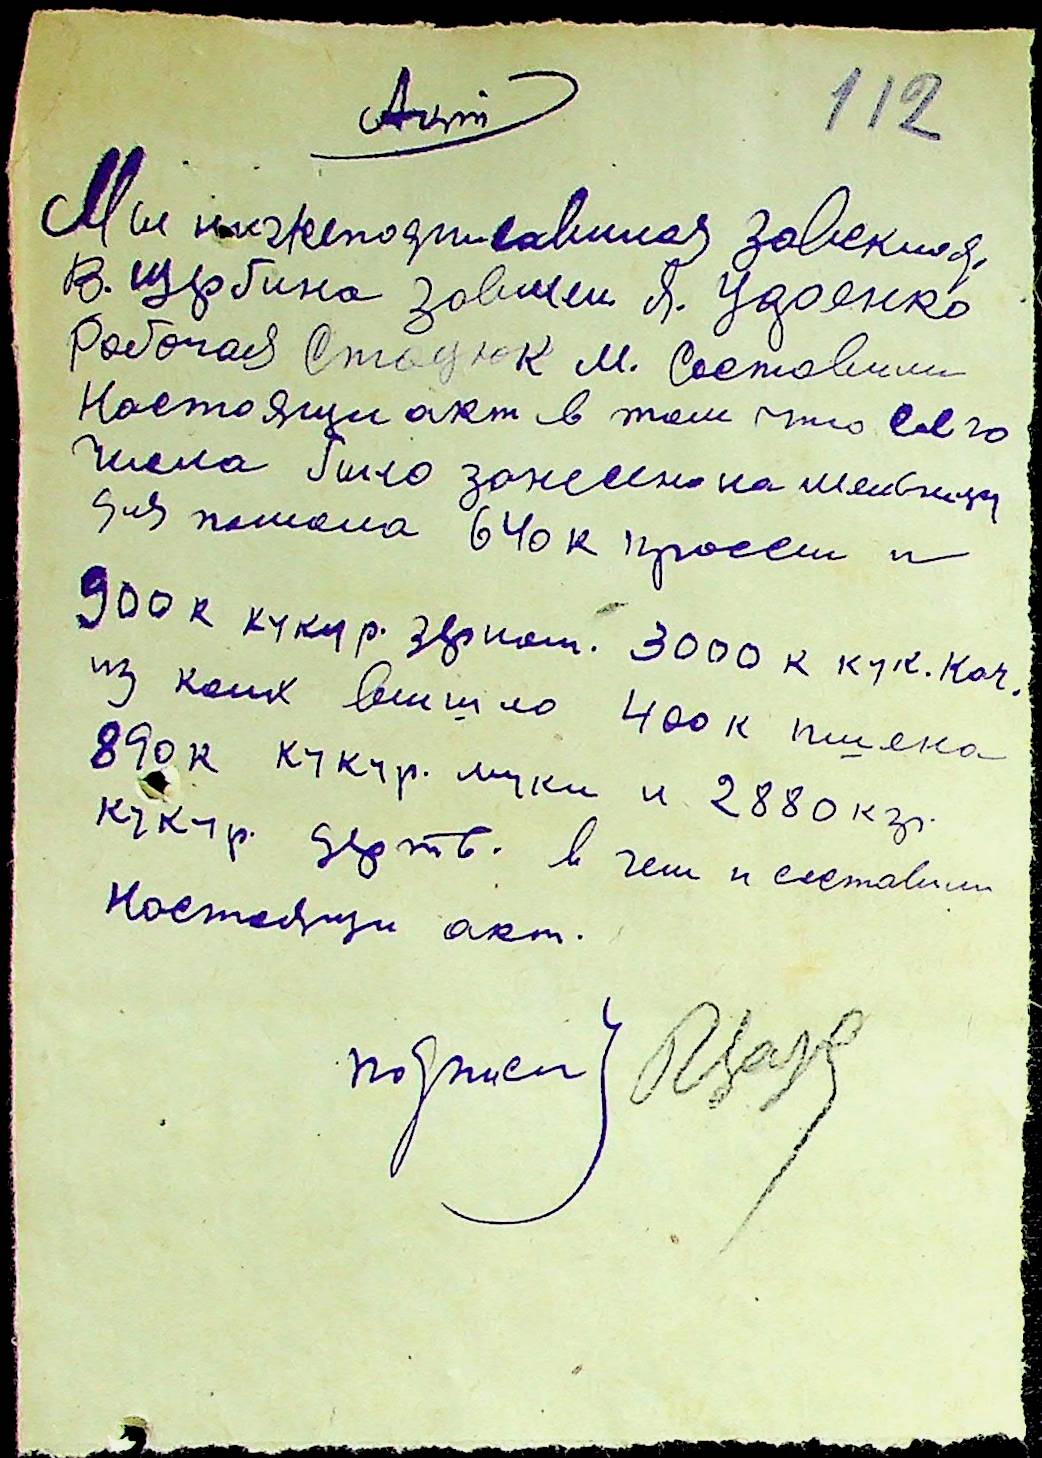 Акт
112
Мы нижеподписавшиая завсклад.
В. Щербина завмел. Я. Удоенко
Рабочая Стацюк М. Составили
Настоящи акт в том что сего
числа было занесено на мельницу
для помола 640 к проссы и
900 к кукур. зерном. 3000 к кук. Кач.
из коих вышло 400 к пшена
890 к кукур. муки и 2880 кгр.
кукур. дерть. в чем и составили
Настоящи акт.
подписи